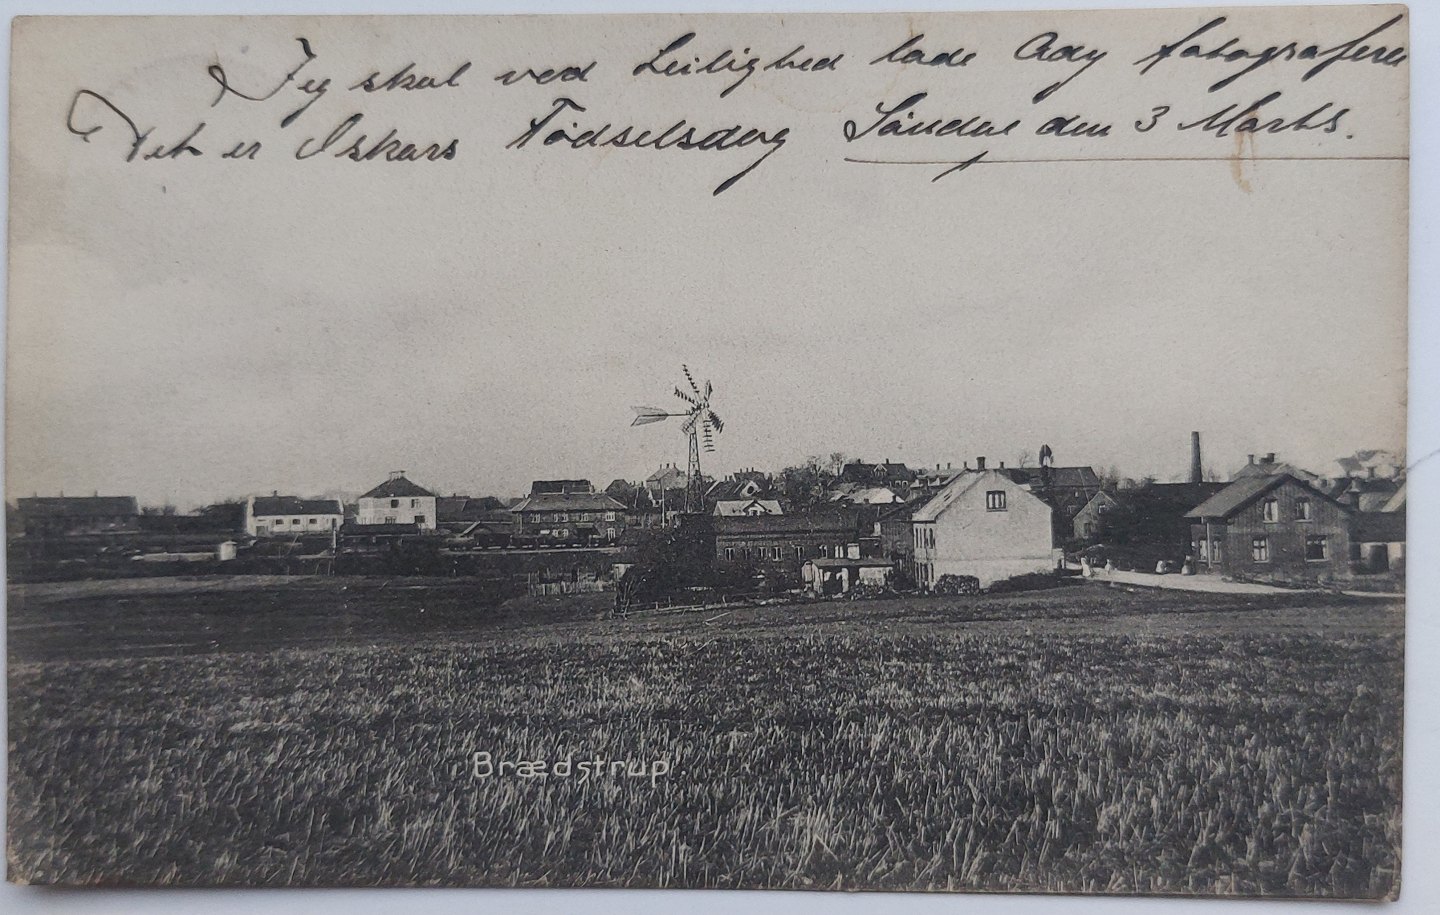 Jeg skal ved Leilighed lade Aay fotografere
Det er Oskars Fødselsdag Søndag den 3 Marts.
Brædstrup.